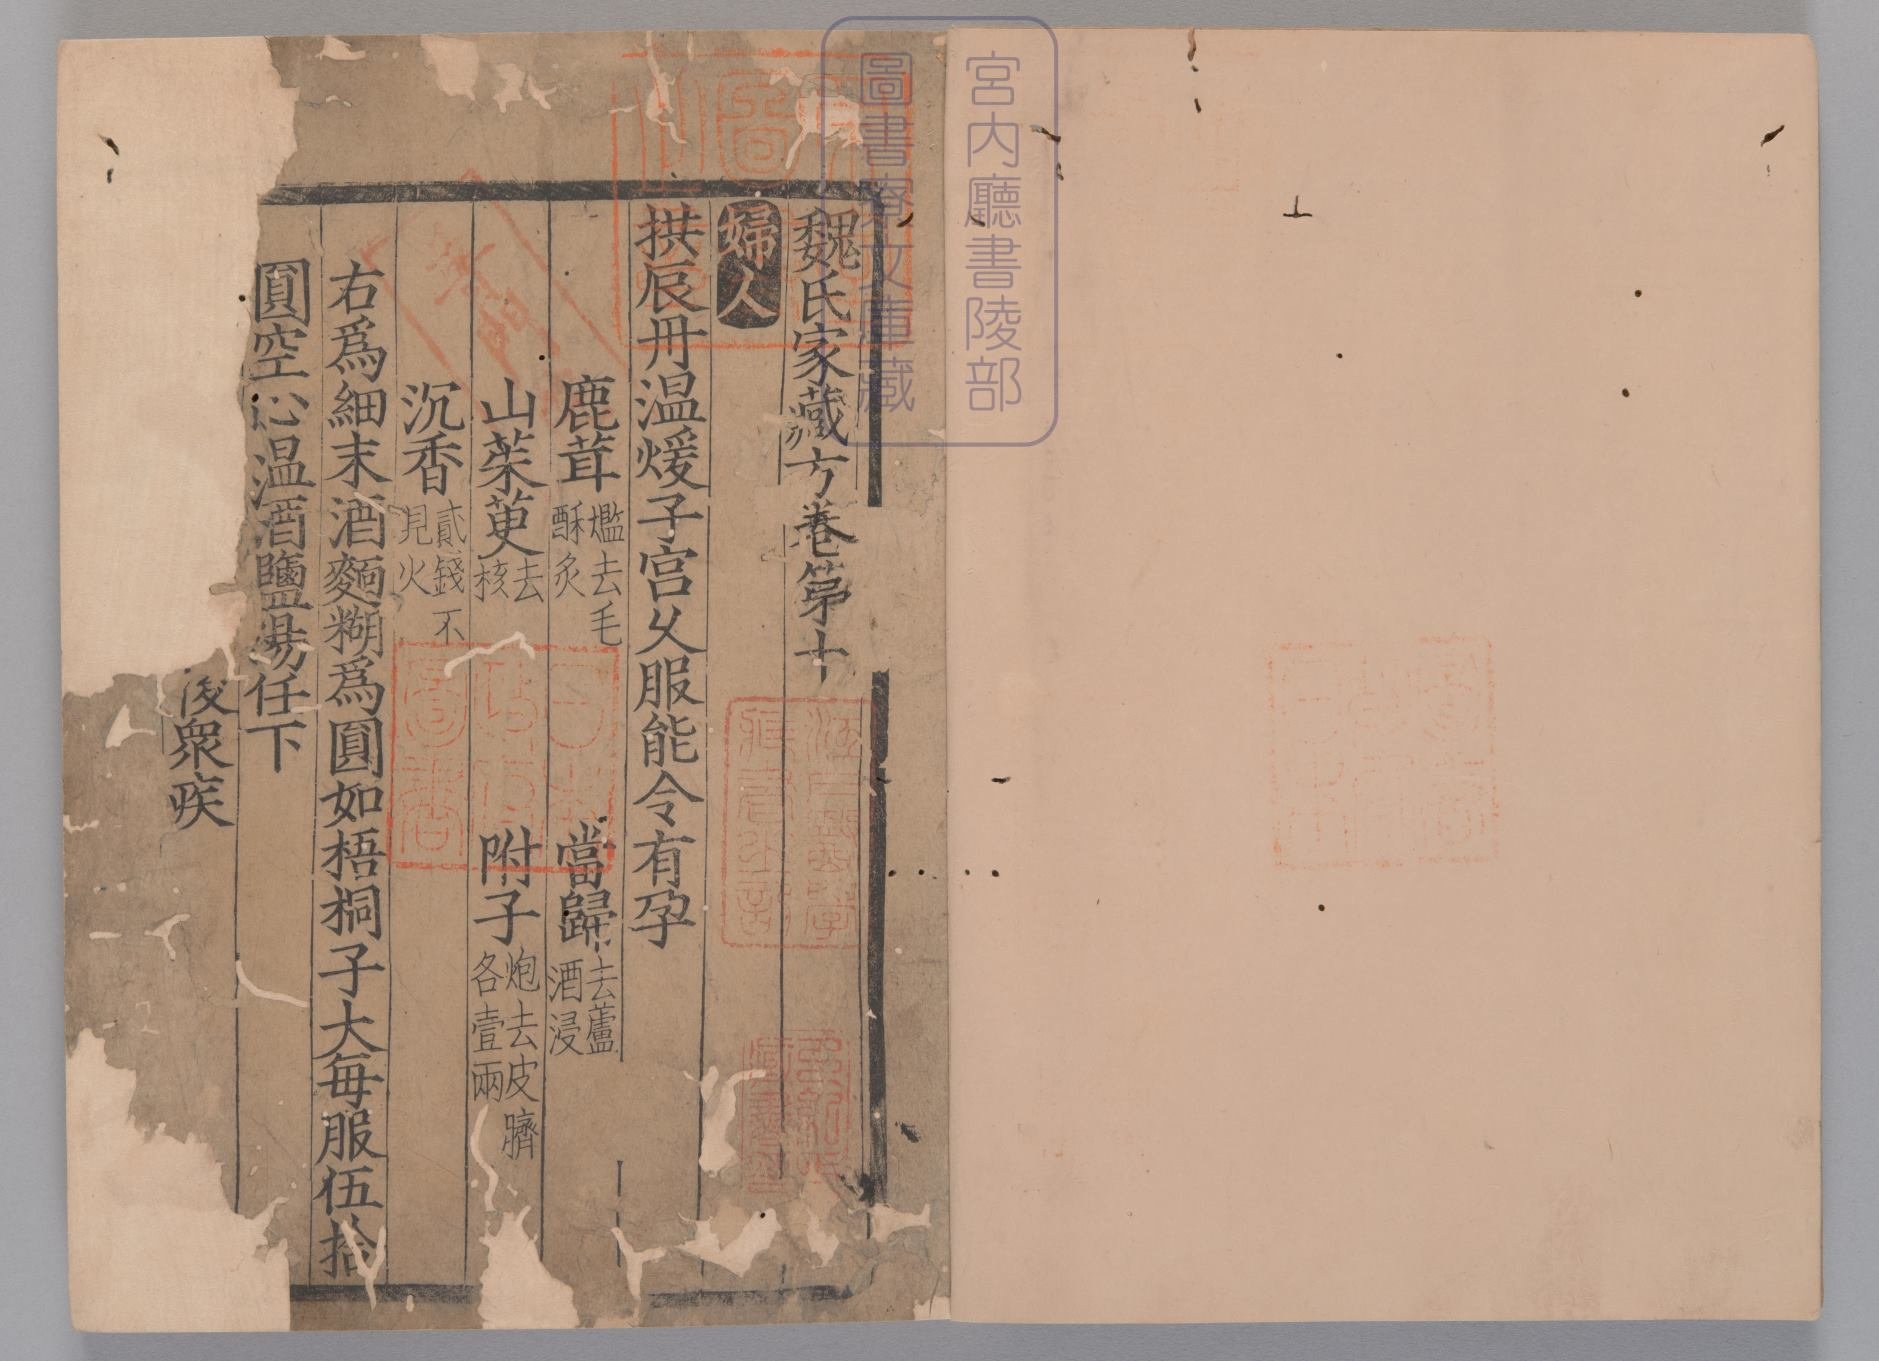 宮内廳書陵部
圖書寮文庫藏
魏氏家藏方卷第十
婦人
拱辰丹温煖子宫乆服能令有孕
鹿茸爁去毛酥炙 當歸去蘆酒浸
山茱萸去核 附子炮去皮臍各壹兩
沉香貳錢不見火
右爲細末酒麵糊爲圓如梧桐子大每服伍拾
圓空心温酒鹽湯任下
衆疾